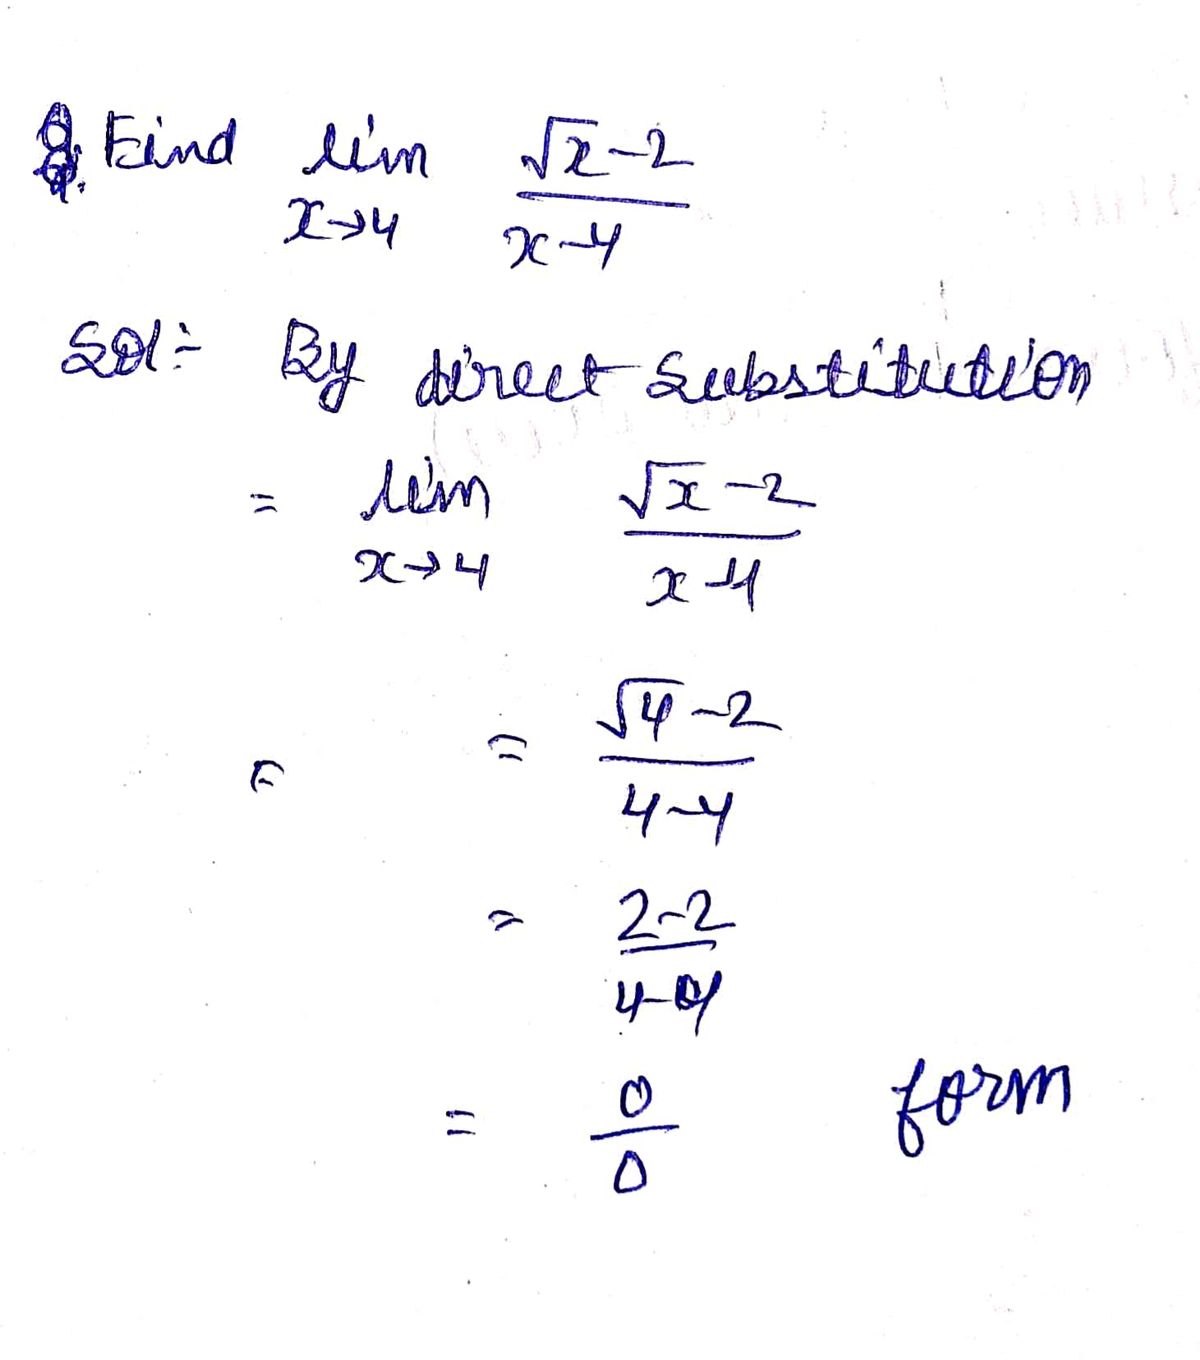 Q. Find lim √x-2 / x-4
x→4
Sol:- By direct substitution
= lim √x-2 / x-4
x→4
= √4-2 / 4-4
= 2-2 / 4-4
= 0 / 0 form